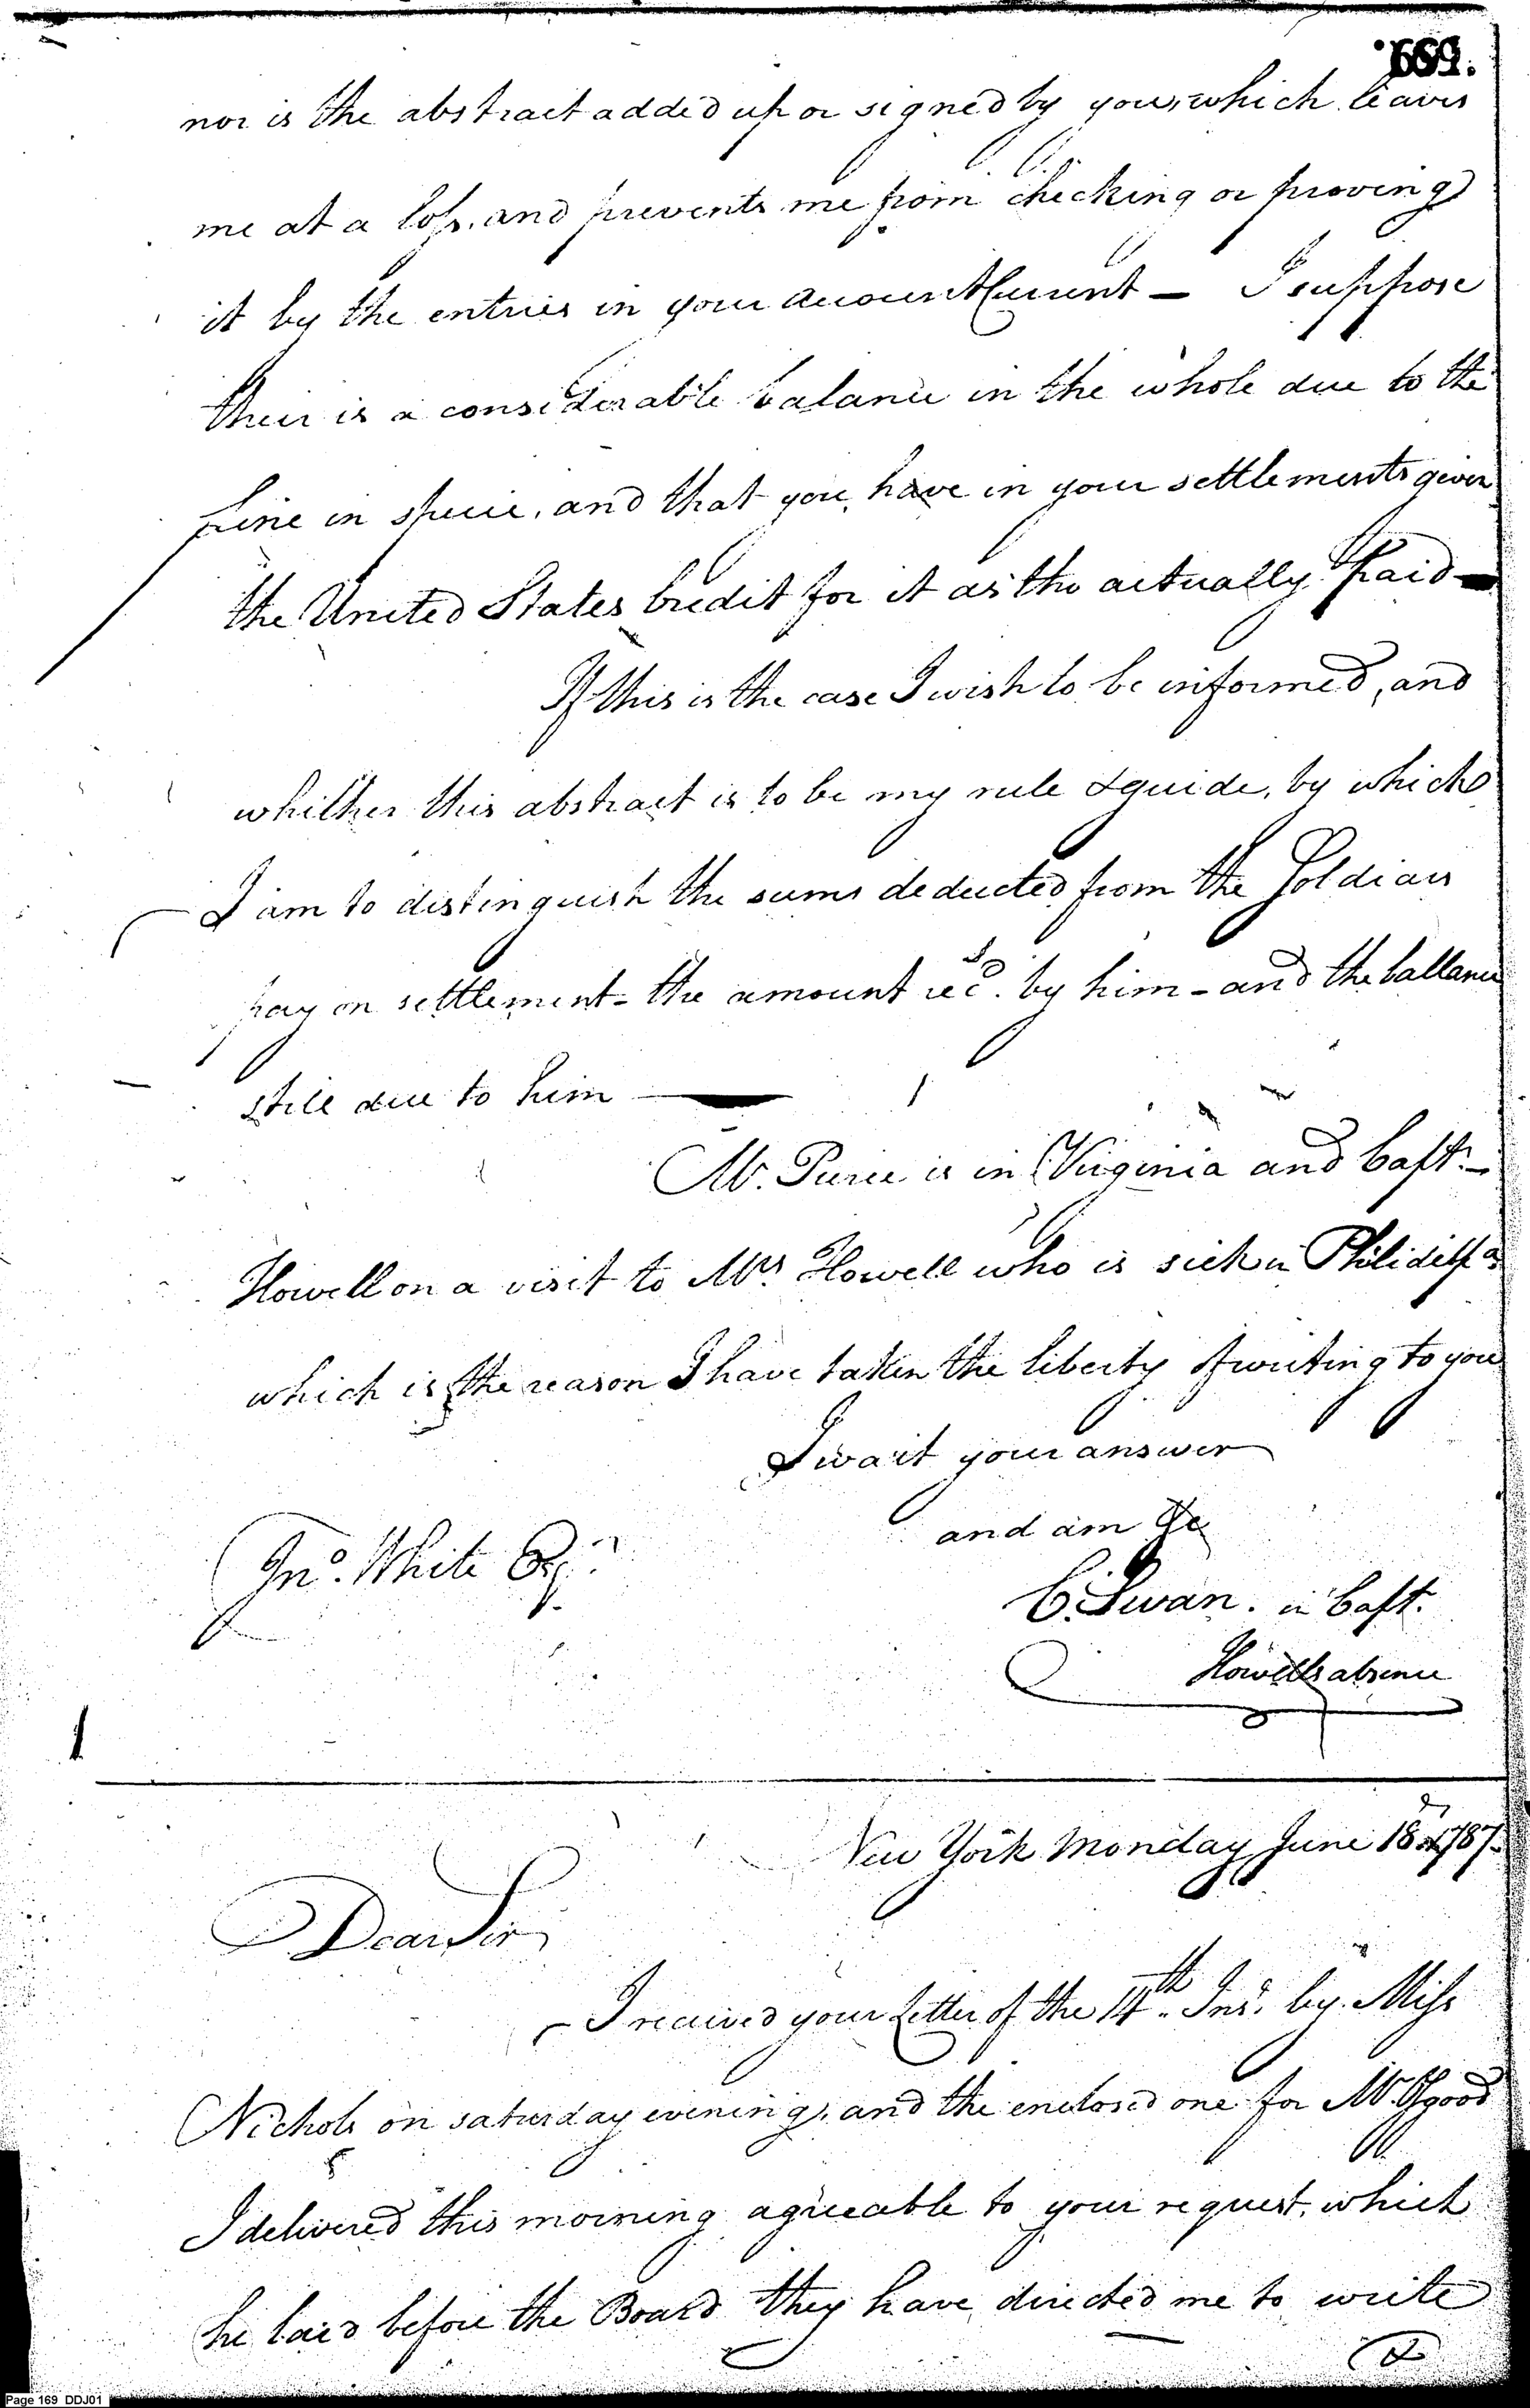 599.
nor is the abstract added up or signed by you, which leaves
me at a loss, and prevents me from checking or proving
it by the entries in your Account Current — I suppose
their is a considerable balance in the whole due to the
Line in specie, and that you have in your settlements given
the United States Credit for it as tho actually Paid —
If this is the case I wish to be informed, and
whither this abstract is to be my rule & guide, by which
I am to distinguish the sums deducted from the Soldiers
pay on settlement - the amount recd. by him - and the ballance
still due to him
Mr. Pierce is in Virginia and Capt. —
Howell on a visit to Mrs Howell who is sick in Philidelpa
which is the reason I have taken the liberty of writing to you
I wait your answer
and am &c
Jno. White Esqr.
C. Swan. in Capt.
Howells absence
New York Monday June 18 1787.
Dear Sir
I received your Letter of the 14th. Inst. by Miss
Nichols on saturday evening, and the enclosed one for Mr. Osgood
I delivered this morning agreeable to your request, which
he laid before the Board they have directed me to write
Page 169 DDJ01